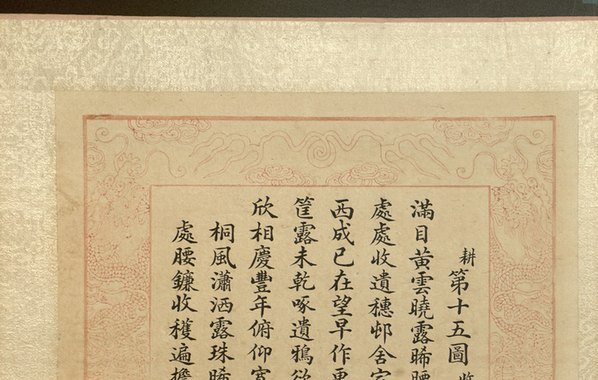 耕第十五圖收
滿目黃雲曉露晞腰
處處收遺穗邨舍家
西成已在望早作更
筐露未乾啄遺鴉欲
欣相慶豐年俯仰
桐風瀟洒露珠晞
處腰鐮收穫遍擔